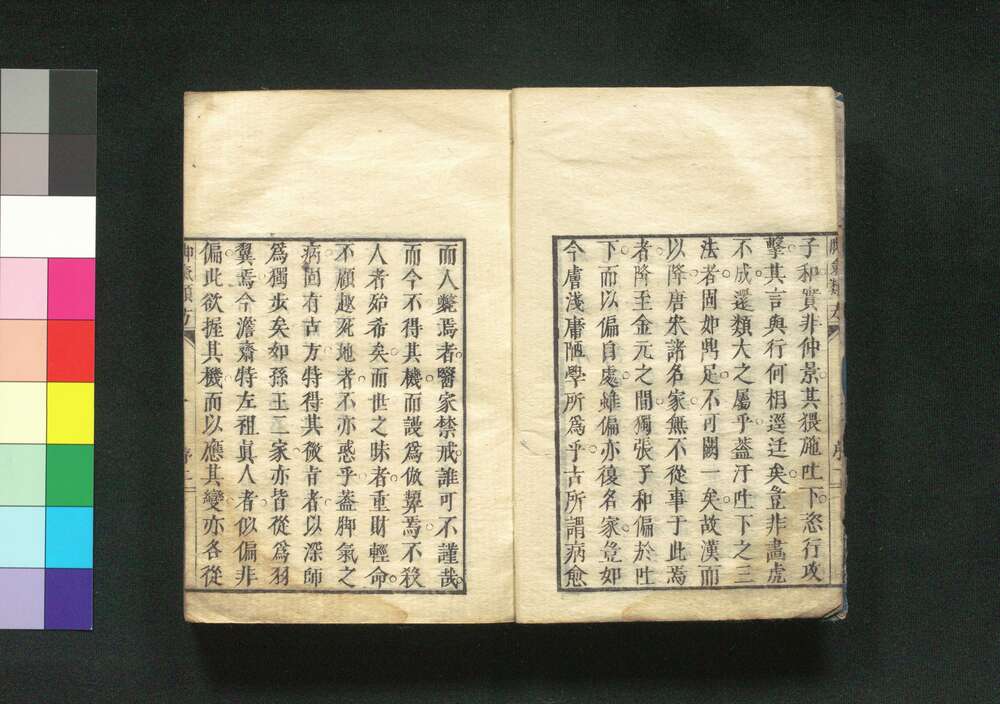 子和實非仲景其猥施吐下恣行攻
擊其言與行何相逕迋矣。豈非畵虎
不成還類犬之屬乎。蓋汗吐下之三
法者。固如鼎足。不可闕一矣。故漢而
以降。唐宋諸名家。無不從事于此焉
者。降至金元之間。獨張子和。偏於吐
下而以偏自處。雖偏亦復名家。豈如
今膚淺庸陋學所爲乎。古所謂病愈
而人斃焉者。醫家禁戒。誰可不謹哉。
而今不得其機。而謾爲倣顰焉。不殺
人者殆希矣。而世之昧者。重財輕命。
不顧趣死地者。不亦惑乎。蓋脚氣之
病。固有古方。特得其微旨者。以深師
爲獨步矣。如孫王二家。亦皆從爲羽
翼焉。今澹齋特左祖眞人者。似偏非
偏。此欲握其機。而以應其變。亦各從
脚氣類方
序二